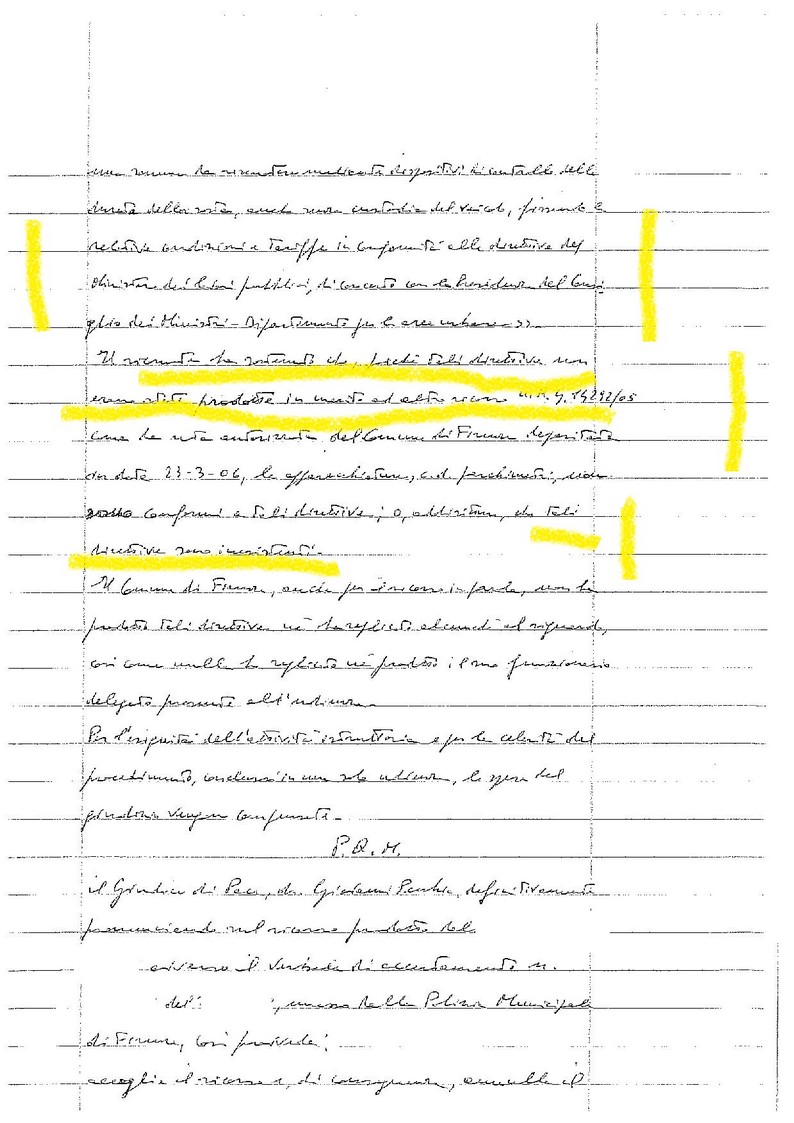 una somma da riscuotere mediante dispositivi di controllo della
durata della sosta, anche senza custodia del veicolo, fissando le
relative condizioni e tariffe in conformità alle direttive del
Ministero dei lavori pubblici, di concerto con la Presidenza del Consi
glio dei Ministri - Dipartimento per le aree urbane >>.
Il ricorrente ha sostenuto che, poiché tali direttive non
erano state prodotte in merito ad altro ricorso n. r. g. 14292/05
come da nota autorizzata del Comune di Firenze depositata
in data 23-3-06, le apparecchiature, c.d. parchimetri, non
sono conformi a tali direttive; o, addirittura, che tali
direttive sono inesistenti.
Il Comune di Firenze, anche per il ricorso in parola, non ha
prodotto tali direttive né ha replicato alcunché al riguardo,
così come nulla ha replicato né prodotto il suo funzionario
delegato presente all'udienza.
Per l'esiguità dell'attività istruttoria e per la celerità del
procedimento, conclusosi in una sola udienza, le spese del
giudizio vengono compensate.
P.Q.M.
il Giudice di Pace, dr. Giovanni, definitivamente
pronunciando sul ricorso prodotto dal
avverso il Verbale di accertamento n.
del , emesso dalla Polizia Municipale
di Firenze, così provvede:
accoglie il ricorso e, di conseguenza, annulla il